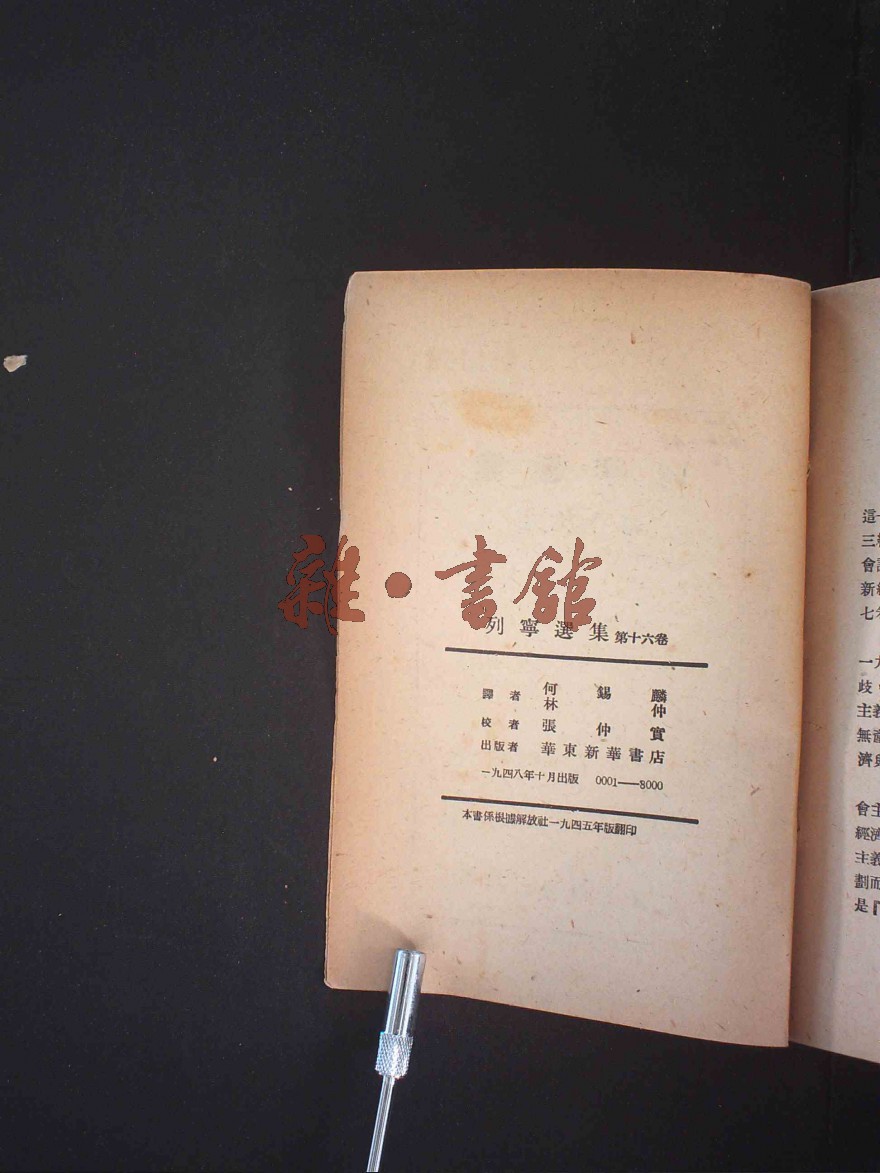 雜·書館
列寧選集 第十六卷
譯者 何錫麟
林仲
校者 張仲實
出版者 華東新華書店
一九四八年十月出版 0001——8000
本書係根據解放社一九四五年版翻印
這
三
會
新
七
一
歧
主義
無
濟
會主
經濟
主義
劃而
是『